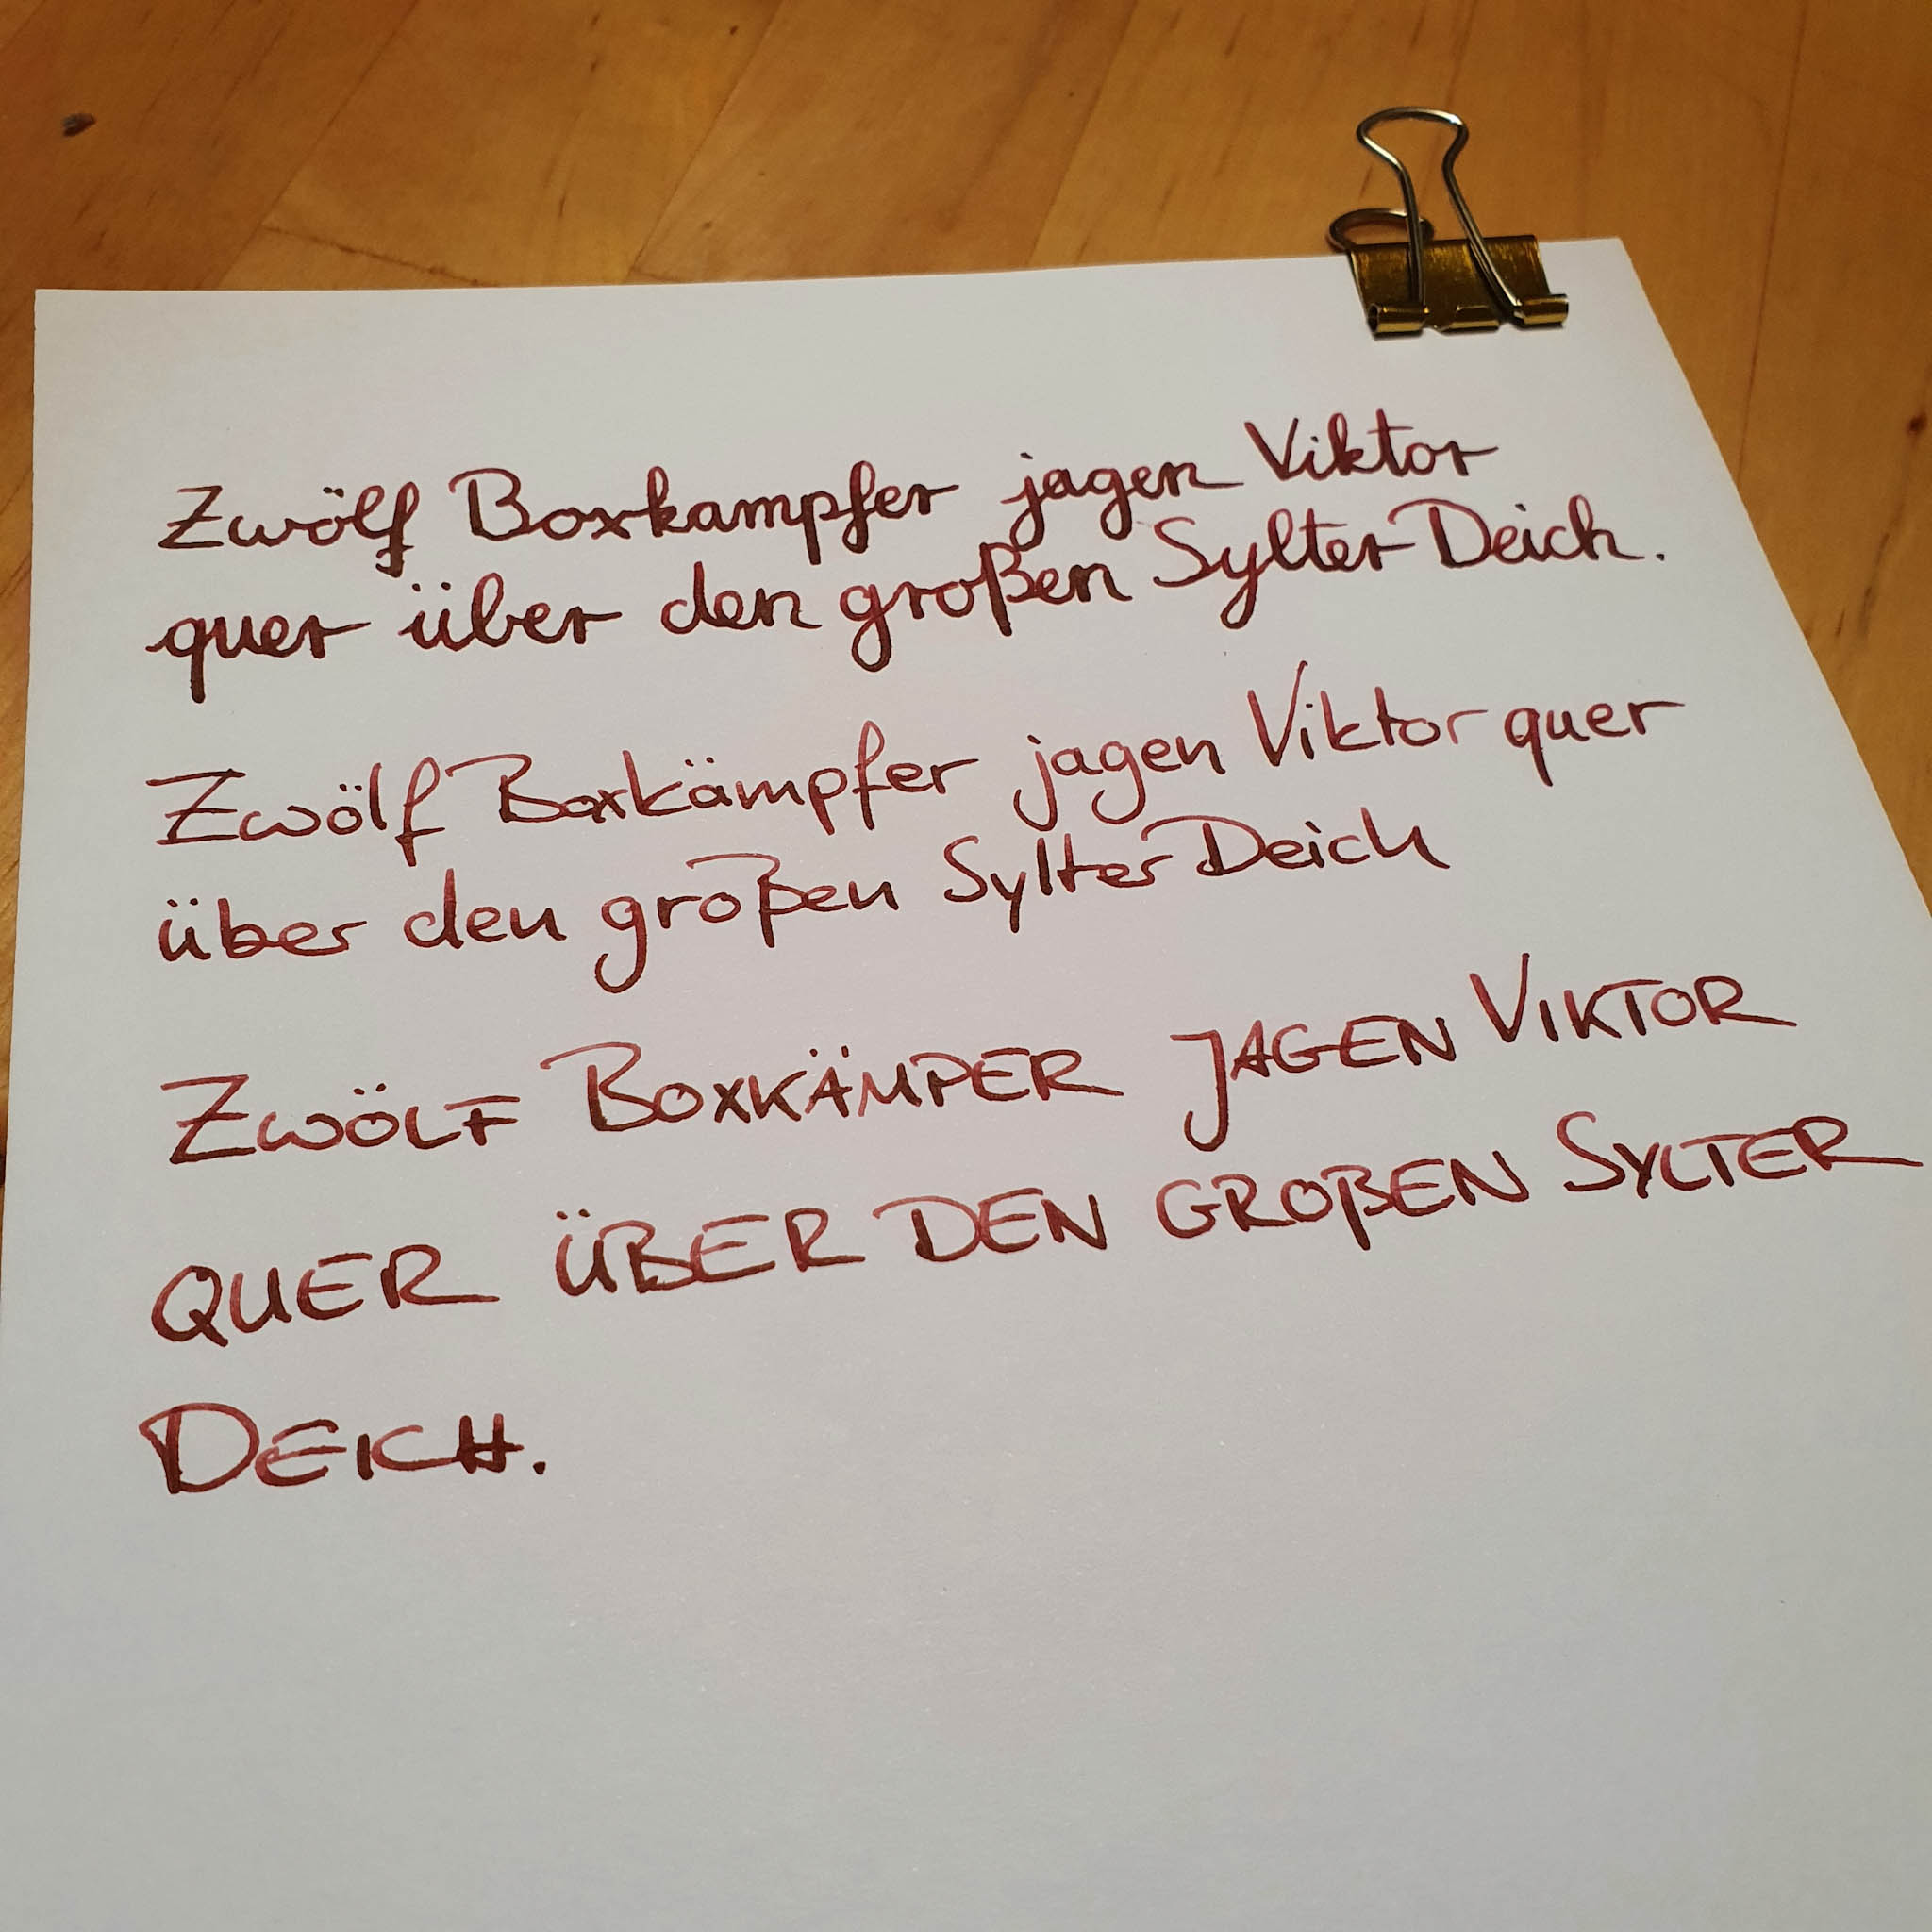 Zwölf Boxkampfer jagen Viktor
quer über den großen Sylter Deich.
Zwölf Boxkämpfer jagen Viktor quer
über den großen Sylter Deich
ZWÖLF BOXKÄMPER JAGEN VIKTOR
QUER ÜBER DEN GROßEN SYLTER
DEICH.